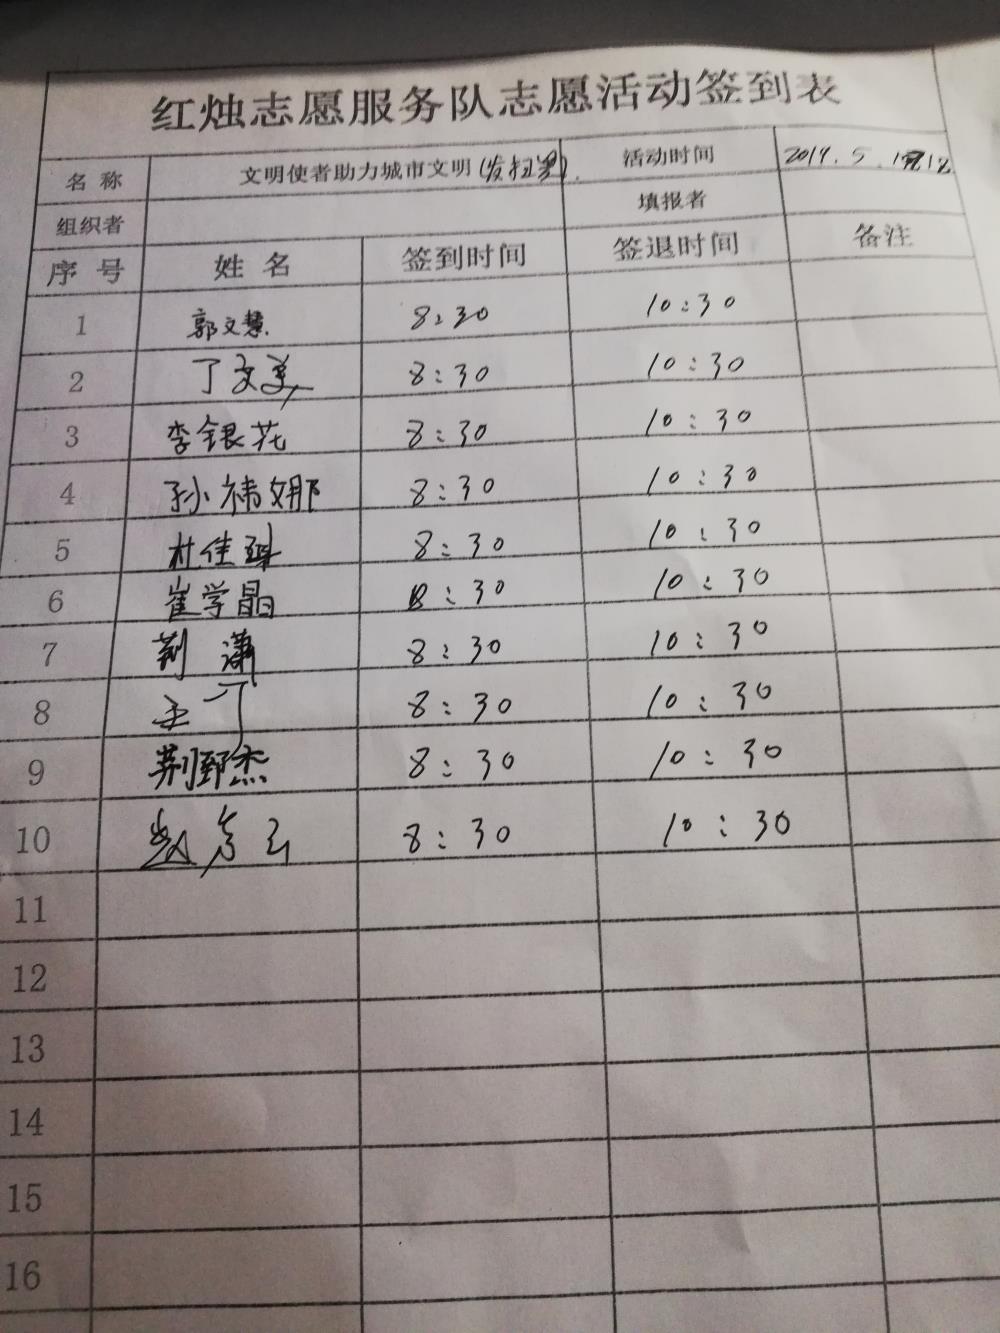 红烛志愿服务队志愿活动签到表
名 称 文明使者助力城市文明 活动时间 2019.5.
组织者 填报者
序 号 姓 名 签到时间 签退时间 备注
1 郭文慧 8:30 10:30
2 丁文美 8:30 10:30
3 李银花 8:30 10:30
4 孙祎娜 8:30 10:30
5 杜佳 8:30 10:30
6 崔学晶 8:30 10:30
7 荆 潇 8:30 10:30
8 王丁 8:30 10:30
9 荆郅杰 8:30 10:30
10 赵 8:30 10:30
11
12
13
14
15
16